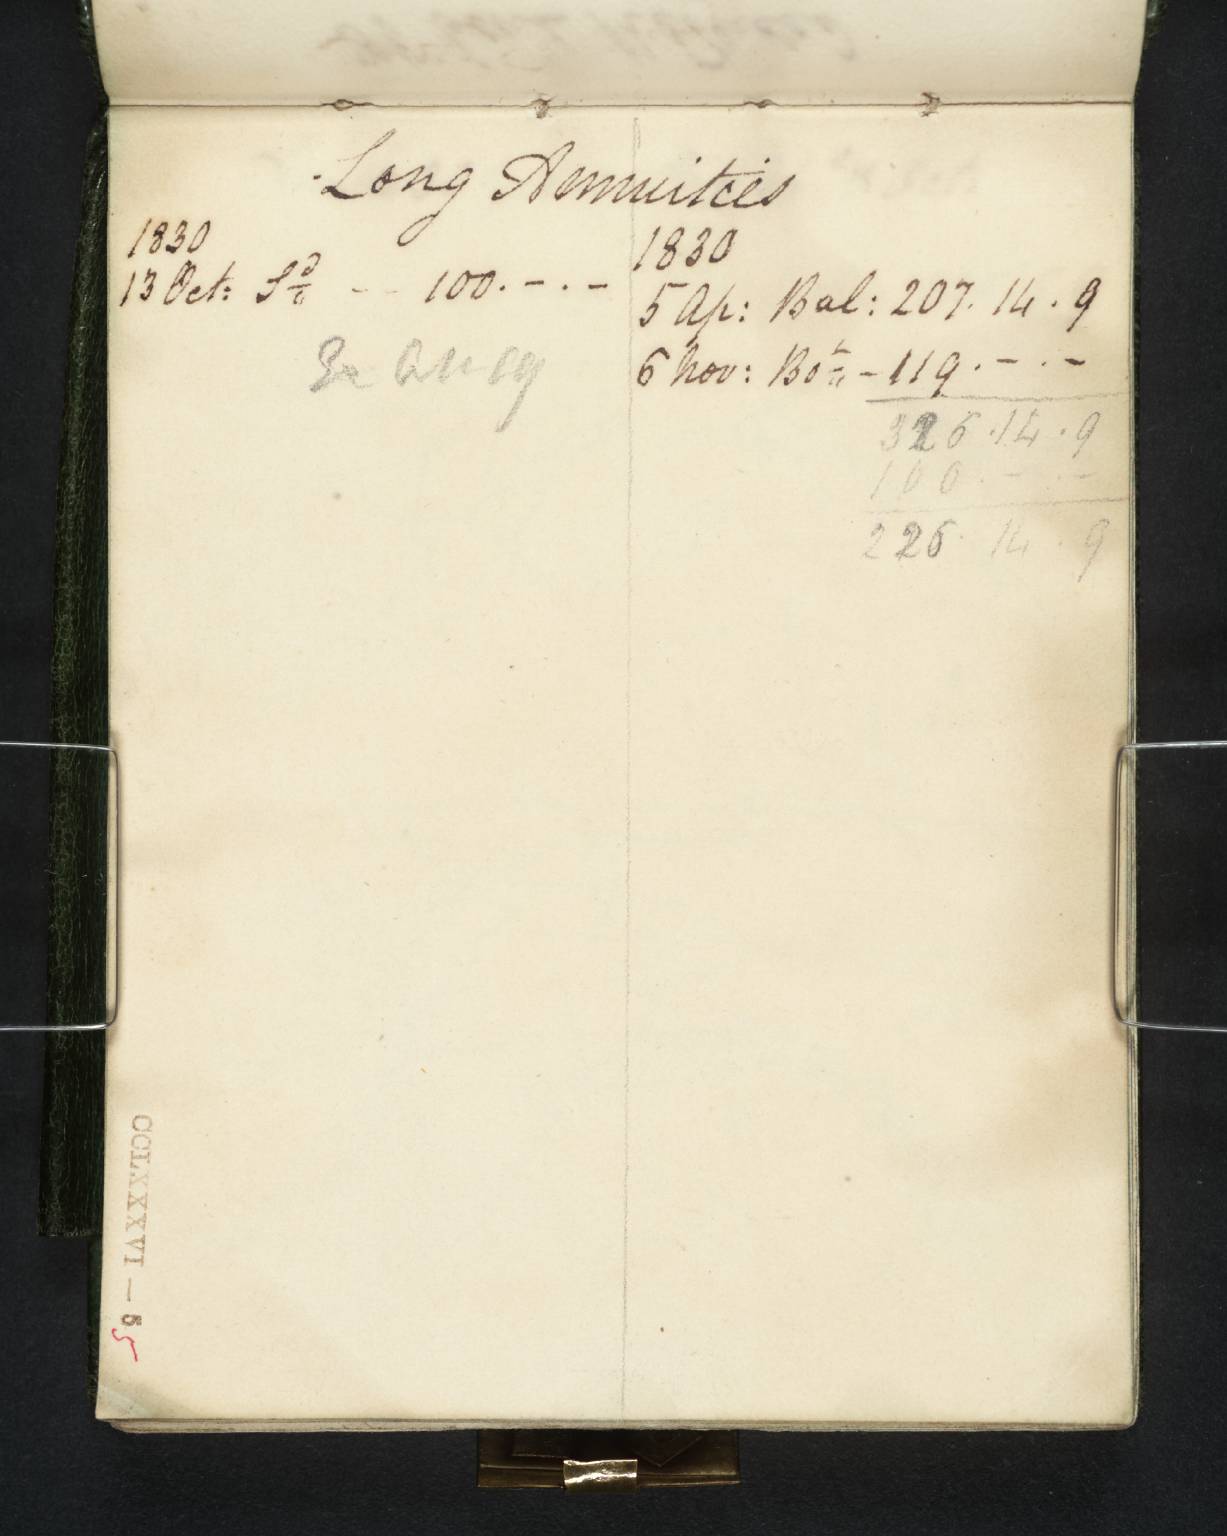 Long Annuities
1830
13 Oct: Sd - - 100 . - . -
1830
5 Ap: Bal: 207 . 14 . 9
6 Nov: Bot - 119 . - . -
326 . 14 . 9
100 . - . -
226 . 14 . 9
CCLXXXVI - 5
5